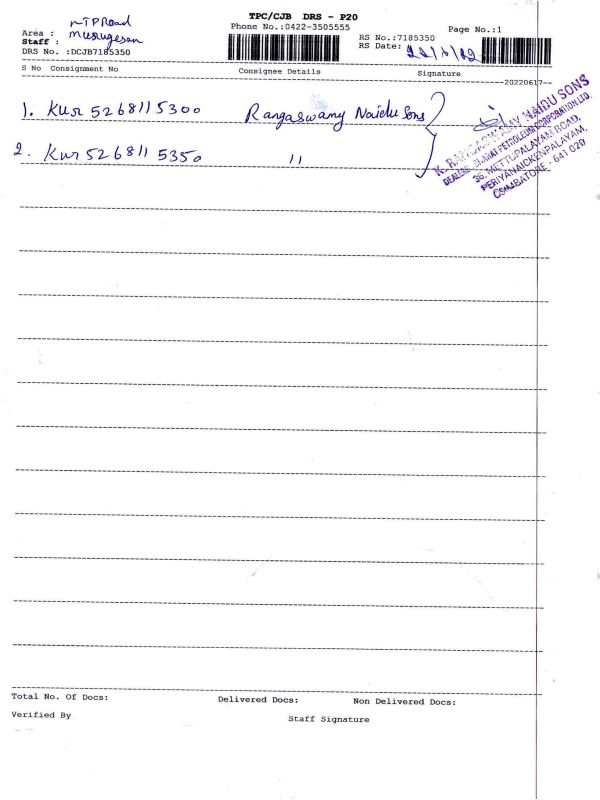 TPC/CJB DRS - P20
Phone No.:0422-3505555
Page No.:1
Area : MTPRoad
Staff : Murugesan
DRS No. :DCJB7185350
RS No.:7185350
RS Date: 22/6/22
S No Consignment No Consignee Details Signature
20220617
1. KUR 526811 5300 Rangaswamy Naidu Sons
2. KUR 526811 5350 "
N. RANGASWAMY NAIDU SONS
DEALERS: BHARAT PETROLEUM CORPORATION LTD.
36, METTUPALAYAM ROAD,
PERIYANAICKENPALAYAM,
COIMBATORE - 641 020
Total No. Of Docs: Delivered Docs: Non Delivered Docs:
Verified By Staff Signature